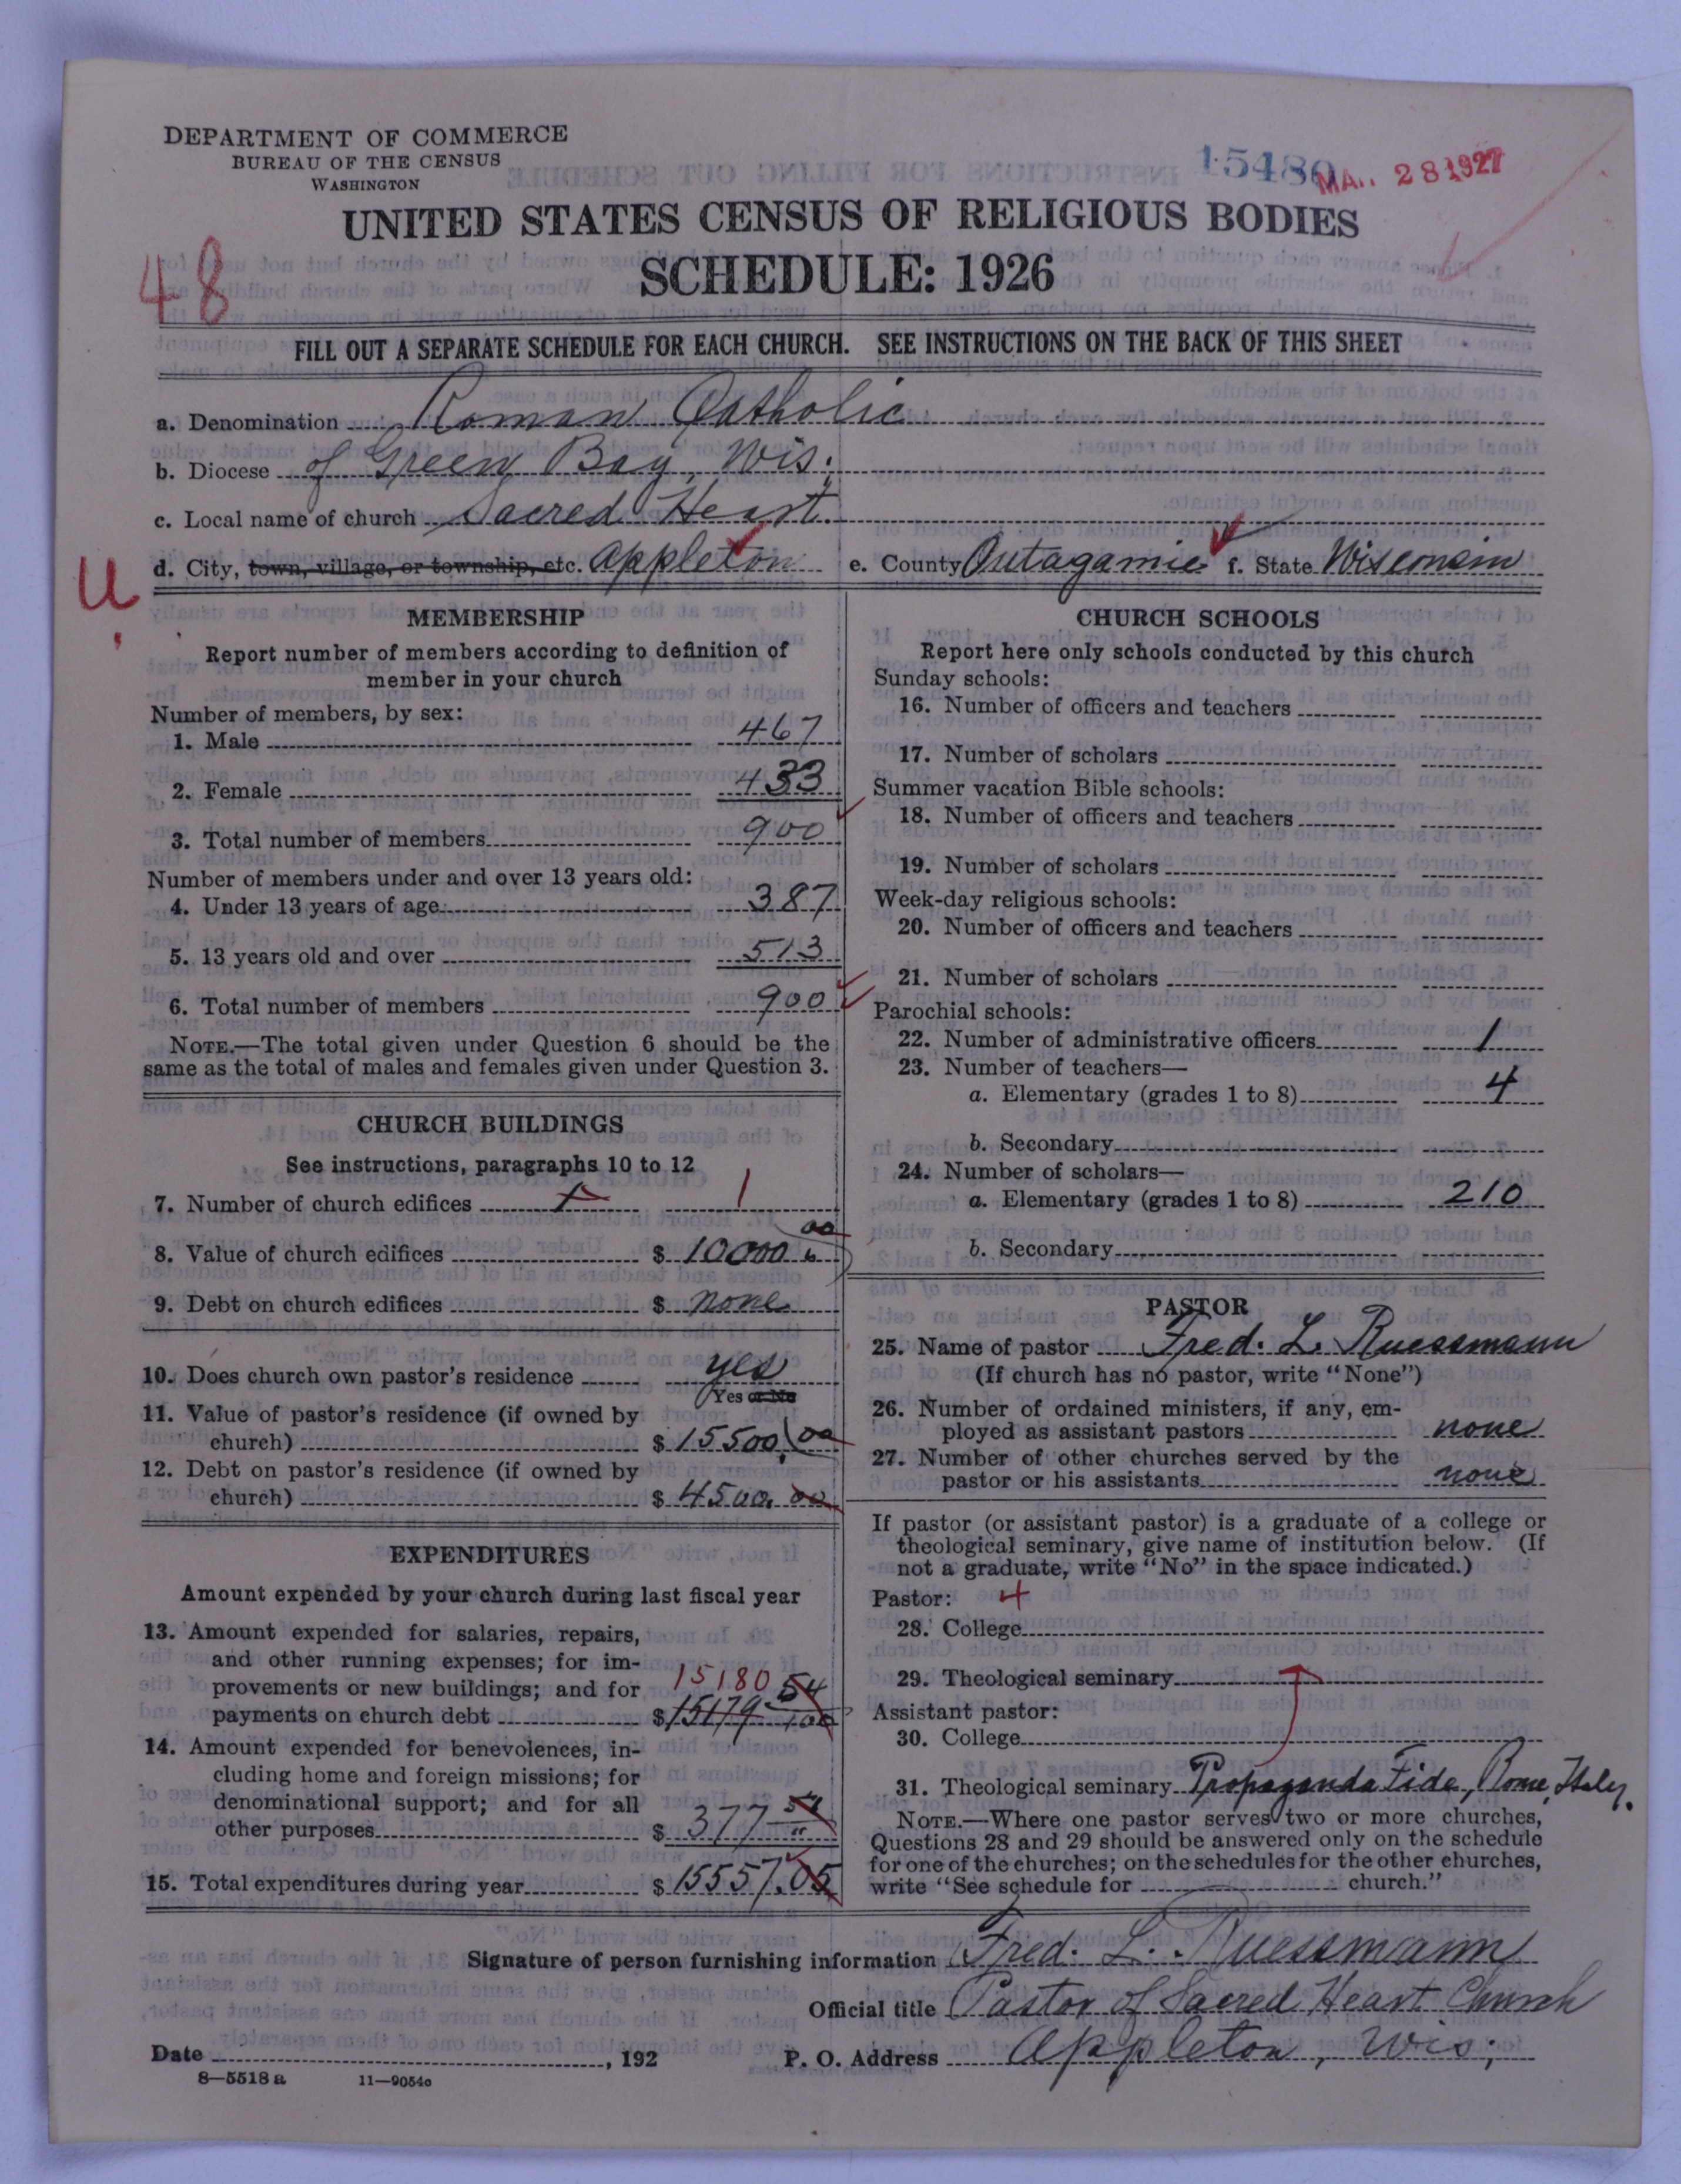 DEPARTMENT OF COMMERCE
BUREAU OF THE CENSUS
WASHINGTON
15480
MAR 28 1927
UNITED STATES CENSUS OF RELIGIOUS BODIES
48
SCHEDULE: 1926
FILL OUT A SEPARATE SCHEDULE FOR EACH CHURCH. SEE INSTRUCTIONS ON THE BACK OF THIS SHEET
a. Denomination Roman Catholic
b. Diocese of Green Bay, Wis.
c. Local name of church Sacred Heart.
d. City, town, village, or township, etc. Appleton e. County Outagamie f. State Wisconsin
U
MEMBERSHIP
Report number of members according to definition of
member in your church
Number of members, by sex:
1. Male 467
2. Female 433
3. Total number of members 900
Number of members under and over 13 years old:
4. Under 13 years of age 387
5. 13 years old and over 513
6. Total number of members 900
NOTE.—The total given under Question 6 should be the
same as the total of males and females given under Question 3.
CHURCH BUILDINGS
See instructions, paragraphs 10 to 12
7. Number of church edifices 1
8. Value of church edifices $ 10000 00
9. Debt on church edifices $ none
10. Does church own pastor's residence yes
Yes or No
11. Value of pastor's residence (if owned by
church) $ 15500.00
12. Debt on pastor's residence (if owned by
church) $ 4500.00
EXPENDITURES
Amount expended by your church during last fiscal year
13. Amount expended for salaries, repairs,
and other running expenses; for im-
provements or new buildings; and for 15180
payments on church debt $ 15179 54/100
14. Amount expended for benevolences, in-
cluding home and foreign missions; for
denominational support; and for all
other purposes $ 377 51
15. Total expenditures during year $ 15557.05
CHURCH SCHOOLS
Report here only schools conducted by this church
Sunday schools:
16. Number of officers and teachers
17. Number of scholars
Summer vacation Bible schools:
18. Number of officers and teachers
19. Number of scholars
Week-day religious schools:
20. Number of officers and teachers
21. Number of scholars
Parochial schools:
22. Number of administrative officers 1
23. Number of teachers—
a. Elementary (grades 1 to 8) 4
b. Secondary
24. Number of scholars—
a. Elementary (grades 1 to 8) 210
b. Secondary
PASTOR
25. Name of pastor Fred. L. Ruessmann
(If church has no pastor, write "None")
26. Number of ordained ministers, if any, em-
ployed as assistant pastors none
27. Number of other churches served by the
pastor or his assistants none
If pastor (or assistant pastor) is a graduate of a college or
theological seminary, give name of institution below. (If
not a graduate, write "No" in the space indicated.)
Pastor: 4
28. College
29. Theological seminary
Assistant pastor:
30. College
31. Theological seminary Propaganda Fide, Rome, Italy.
NOTE.—Where one pastor serves two or more churches,
Questions 28 and 29 should be answered only on the schedule
for one of the churches; on the schedules for the other churches,
write "See schedule for church."
Signature of person furnishing information Fred. L. Ruessmann
Official title Pastor of Sacred Heart Church
Date , 192 P. O. Address Appleton, Wis;
8—5518 a 11—9054c